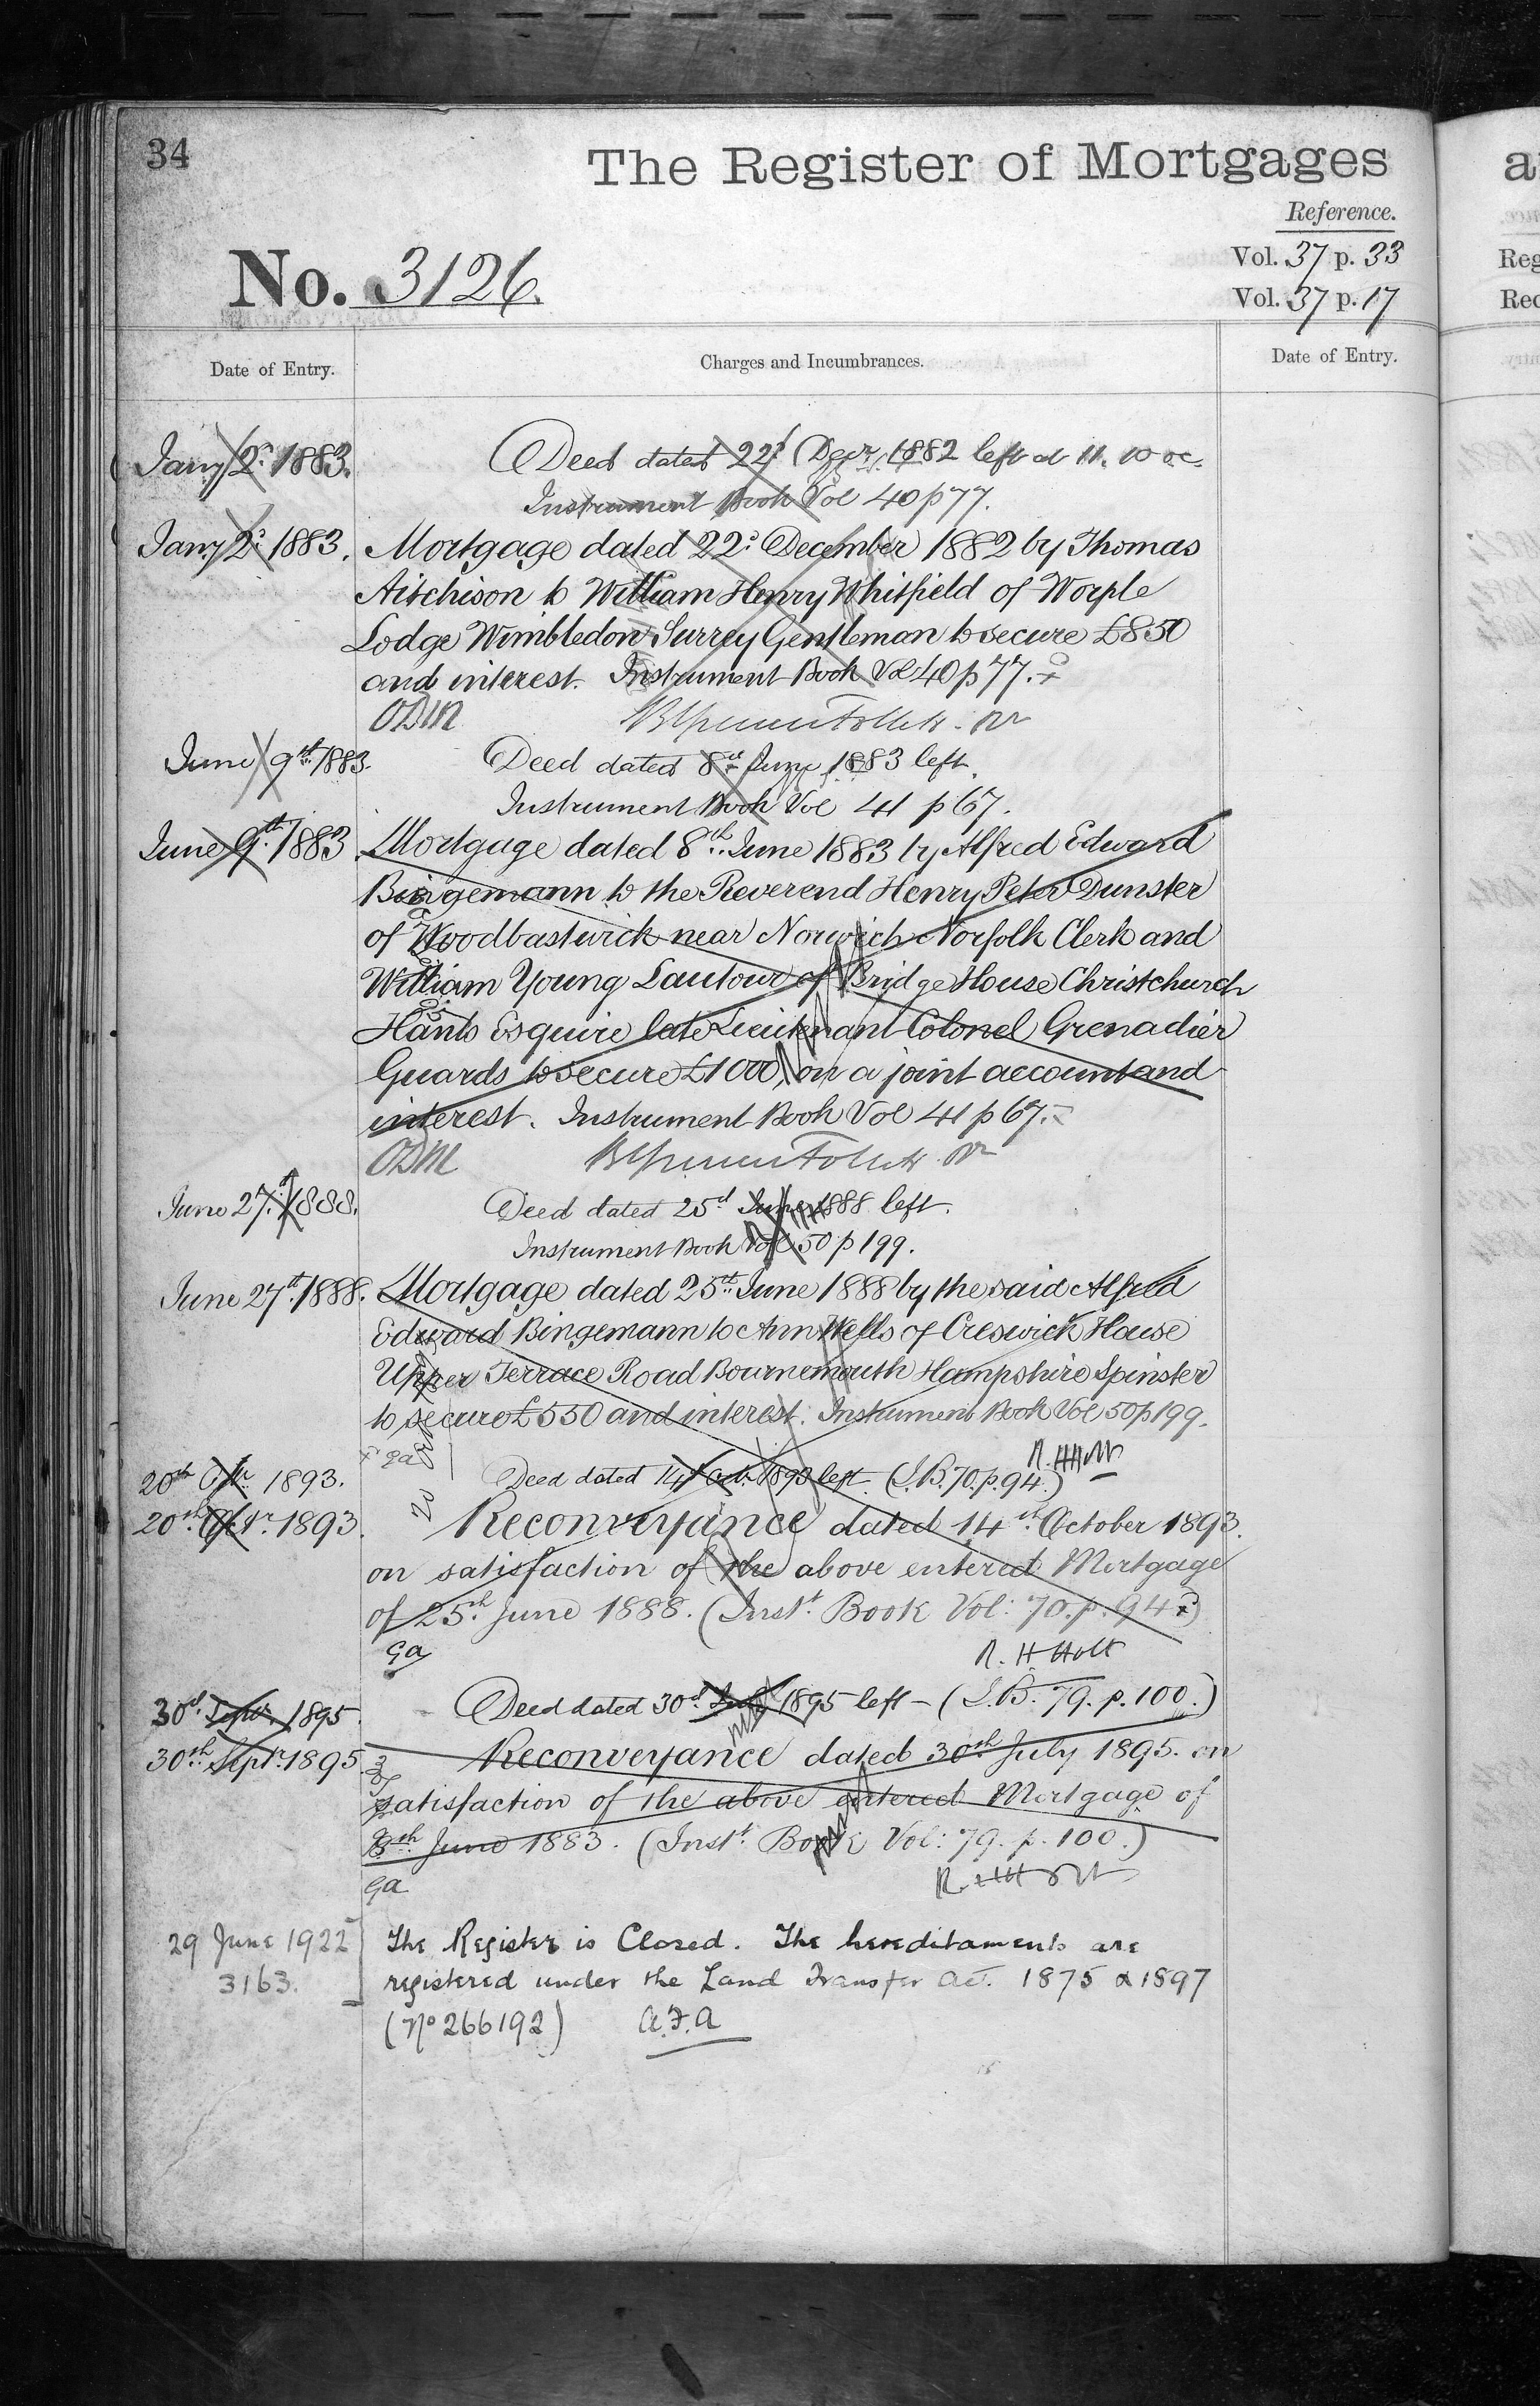 34
The Register of Mortgages
Reference.
Vol. 37 p. 33
No. 3126.
Vol. 37 p. 17
Date of Entry.
Charges and Incumbrances.
Date of Entry.
Jany 2d. 1883.
Deed dated 22d Decr 1882 left at 11.
Instrument Book Vol 40 p 77.
Jany 2d. 1883.
Mortgage dated 22d. December 1882 by Thomas
Aitchison to William Henry Whitfield of Worple
Lodge Wimbledon Surrey Gentleman to secure £850
and interest. Instrument Book Vol 40 p 77.
ODM
June 9th 1883.
Deed dated 8th June 1883 left
Instrument Book Vol 41 p 67.
June 9th 1883.
Mortgage dated 8th. June 1883 by Alfred Edward
Bingemann to the Reverend Henry Peter Dunster
of Woodbastwick near Norwich Norfolk Clerk and
William Young Lautour of Bridge House Christchurch
Hants Esquire late Lieutenant Colonel Grenadier
Guards to secure £1000, on a joint account and
interest. Instrument Book Vol 41 p 67.
ODM
June 27th. 1888.
Deed dated 25th June 1888 left.
Instrument Book Vol 50 p 199.
June 27th. 1888.
Mortgage dated 25th. June 1888 by the said Alfred
Edward Bingemann to Ann Wells of Creswick House
Upper Terrace Road Bournemouth Hampshire Spinster
to secure £550 and interest. Instrument Book Vol 50 p 199.
R. H Holt
20th Octr. 1893.
Deed dated 14th Octr. 1893 left. (I.B. 70. p. 94.)
20th. Octr. 1893.
Reconveyance dated 14th. October 1893.
on satisfaction of the above entered Mortgage
of 25th. June 1888. (Inst. Book Vol: 70. p. 94.)
ga
R. H Holt
30th. Septr. 1895.
Deed dated 30th July 1895 left - (I.B. 79. p. 100.)
30th. Septr. 1895.
Reconveyance dated 30th July 1895. on
satisfaction of the above entered Mortgage of
8th. June 1883. (Inst. Book Vol: 79. p. 100.)
ga
R. H Holt
29 June 1922
The Register is Closed. The hereditaments are
3163.
registered under the Land Transfer Act. 1875 & 1897
(No 266192) A.F.A